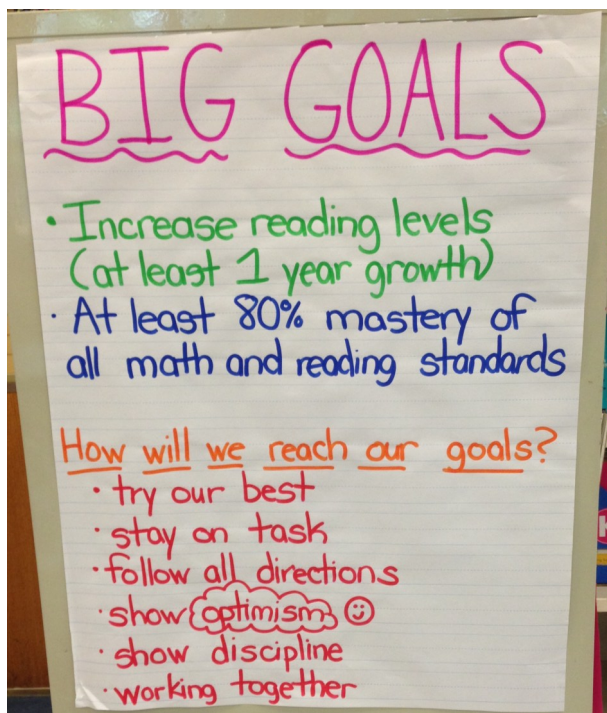 BIG GOALS
• Increase reading levels
(at least 1 year growth)
• At least 80% mastery of
all math and reading standards
How will we reach our goals?
• try our best
• stay on task
• follow all directions
• show optimism ☺
• show discipline
• working together